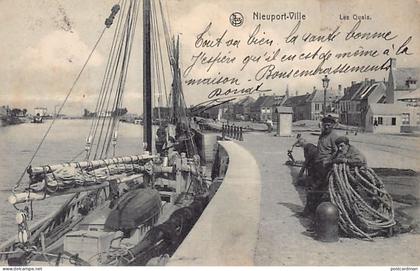 Nieuport-Ville
Les Quais.
Tout va bien, la santé bonne
J'espère qu'il en est de même à la
maison - Bons embrassements
postcardman.com